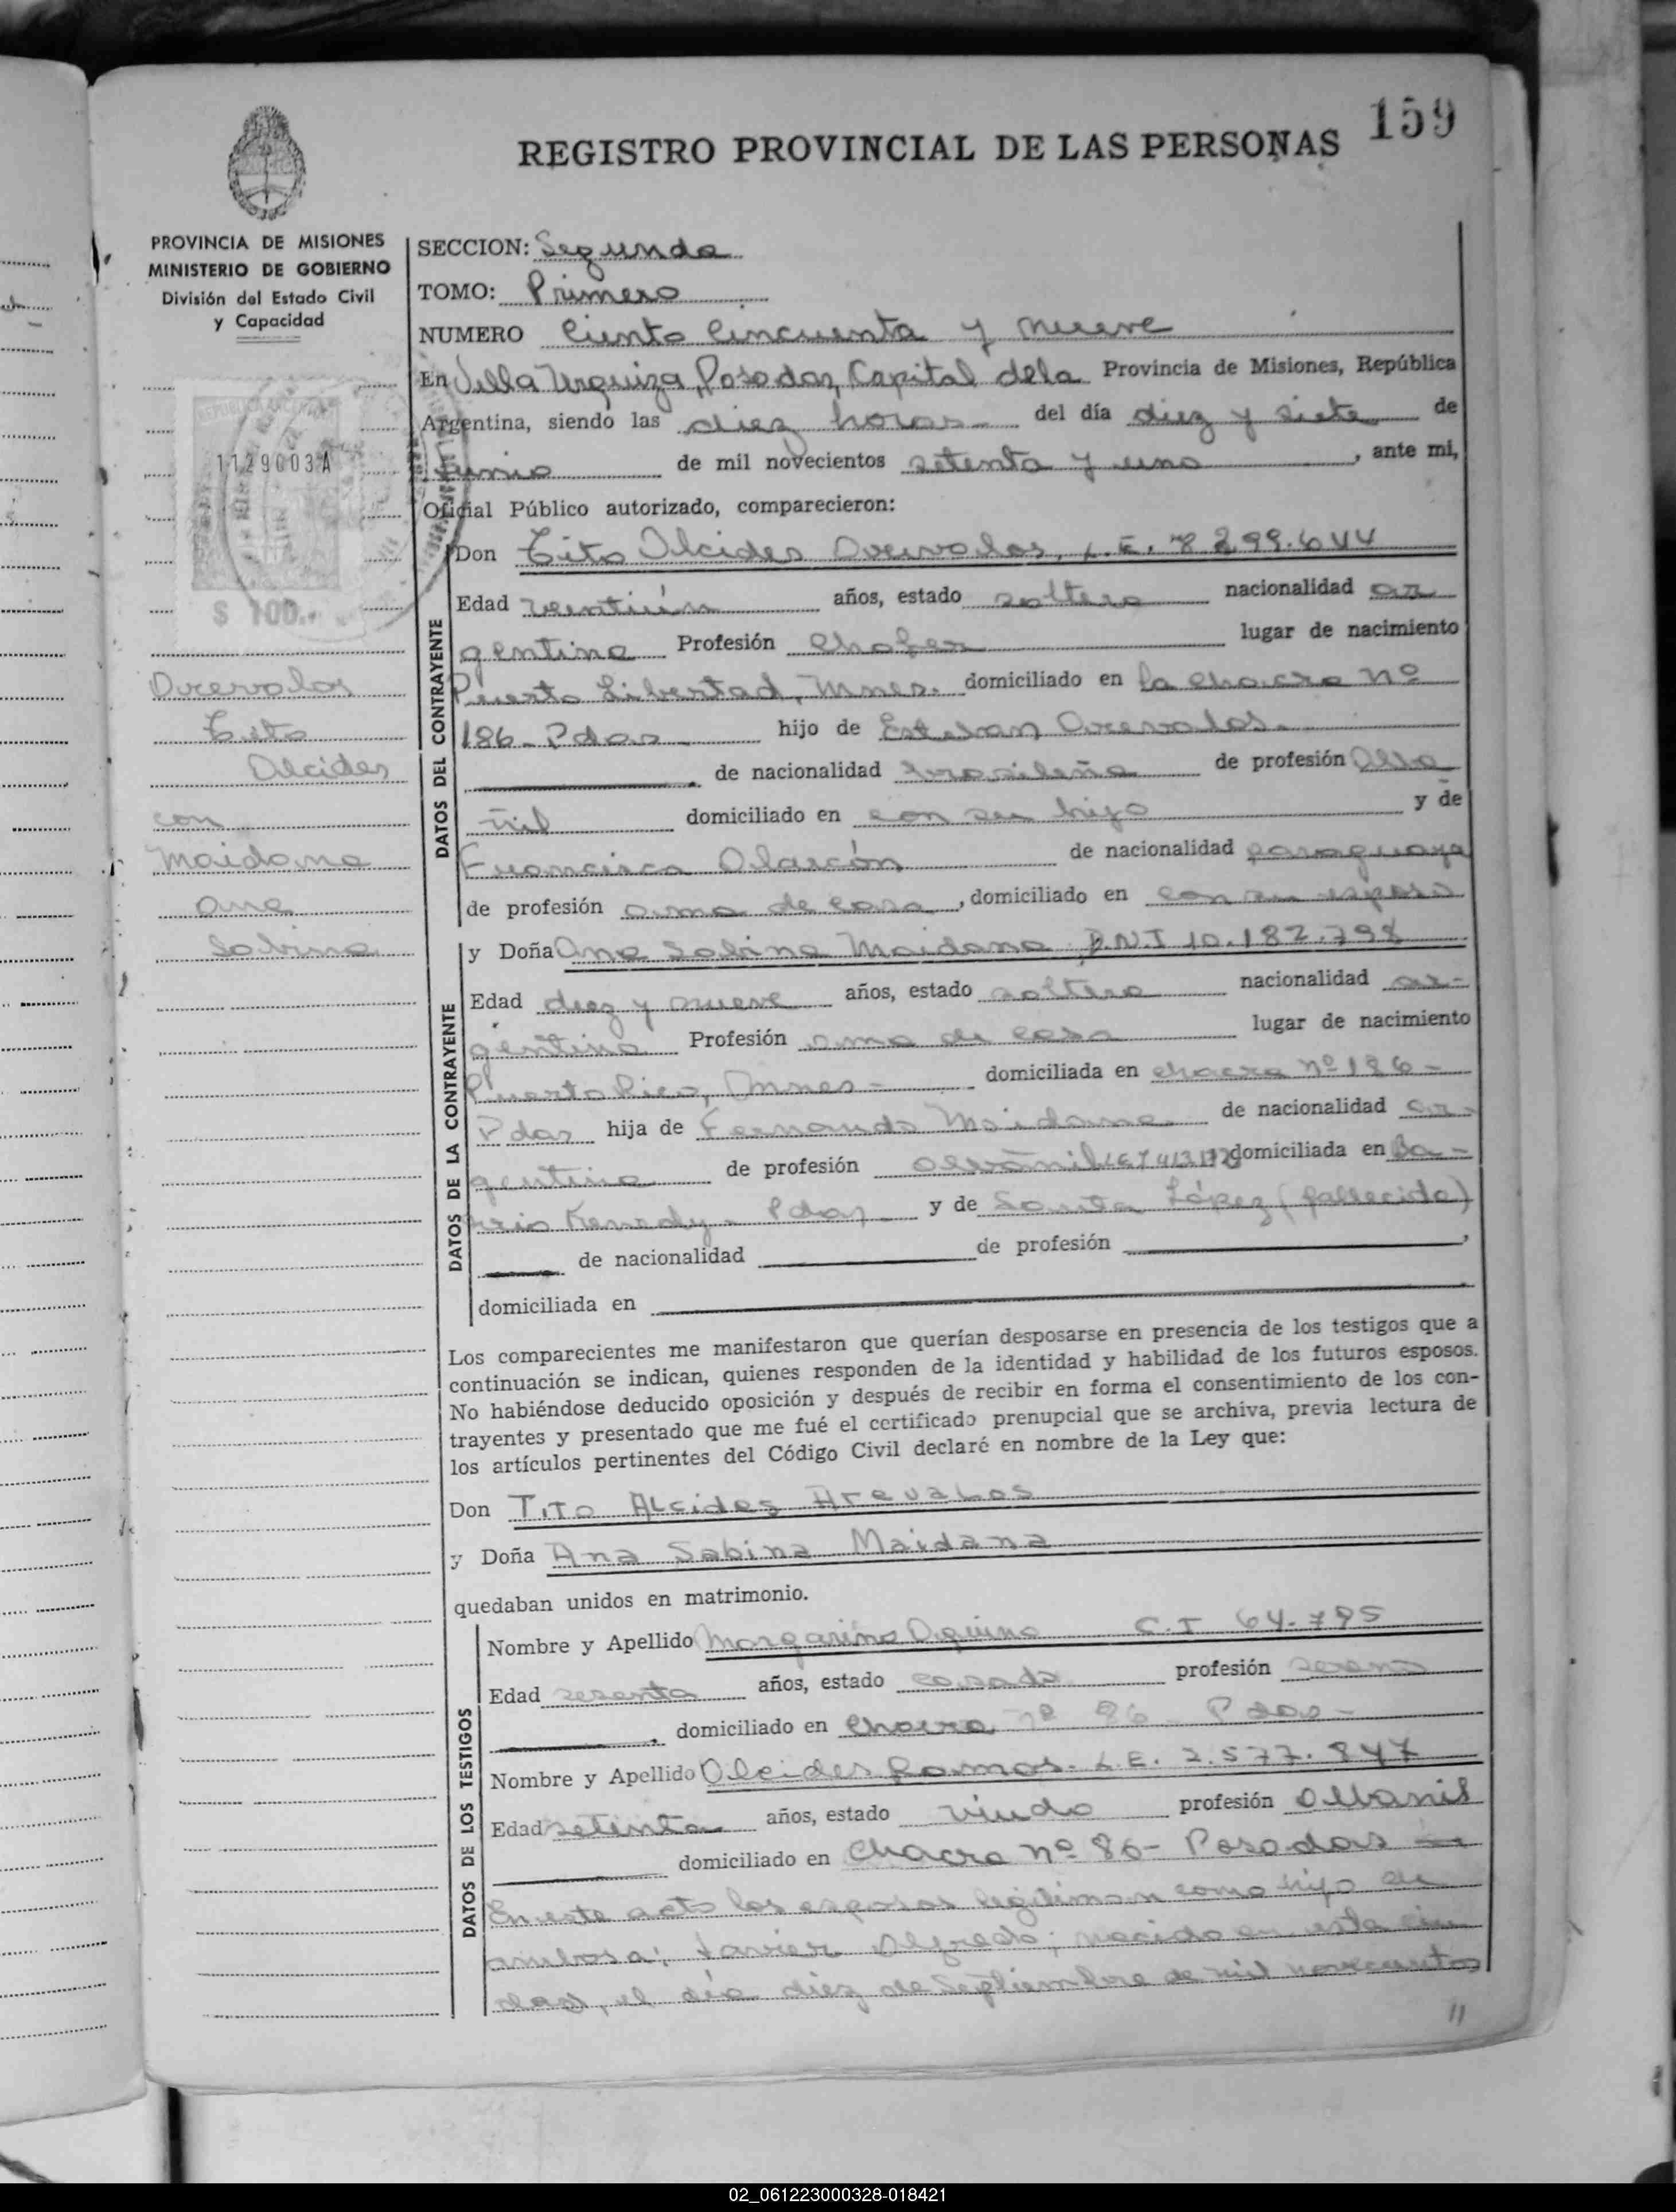 159
REGISTRO PROVINCIAL DE LAS PERSONAS
PROVINCIA DE MISIONES
MINISTERIO DE GOBIERNO
División del Estado Civil
y Capacidad
1129003A
$ 100.-
Arevalos
Tito
Alcides
con
Maidana
Ana
Sabina
SECCION: Segunda
TOMO: Primero
NUMERO Ciento Cincuenta y nueve
En Villa Urquiza, Posadas, Capital de la Provincia de Misiones, República
Argentina, siendo las diez horas- del día diez y siete de
Junio de mil novecientos setenta y uno, ante mi,
Oficial Público autorizado, comparecieron:
DATOS DEL CONTRAYENTE
Don Tito Alcides Arevalos, L.E. 8.299.644
Edad veintiún años, estado soltero nacionalidad ar
gentina Profesión Chofer lugar de nacimiento
Puerto Libertad, Mnes. domiciliado en la chacra nº
186- Pdas hijo de Esteban Arevalos-
de nacionalidad brasileña de profesión Alba
ñil domiciliado en con su hijo y de
Francisca Alarcón de nacionalidad paraguaya
de profesión ama de casa, domiciliado en con su esposo
DATOS DE LA CONTRAYENTE
y Doña Ana Sabina Maidana D.N.I 10.182.798
Edad diez y nueve años, estado soltera nacionalidad ar-
gentina Profesión ama de casa lugar de nacimiento
Puerto Rico, Mnes- domiciliada en chacra nº 186-
Pdas hija de Fernando Maidana de nacionalidad ar-
gentina de profesión domiciliada en Ba-
rrio Kenedy- Pdas- y de Santa López (fallecida)
de nacionalidad de profesión ,
domiciliada en
Los comparecientes me manifestaron que querían desposarse en presencia de los testigos que a
continuación se indican, quienes responden de la identidad y habilidad de los futuros esposos.
No habiéndose deducido oposición y después de recibir en forma el consentimiento de los con-
trayentes y presentado que me fué el certificado prenupcial que se archiva, previa lectura de
los artículos pertinentes del Código Civil declaré en nombre de la Ley que:
Don Tito Alcides Arevalos
y Doña Ana Sabina Maidana
quedaban unidos en matrimonio.
DATOS DE LOS TESTIGOS
Nombre y Apellido Margarino Aquino C.I 64.795
Edad sesenta años, estado casado profesión sereno
domiciliado en Chacra nº 86- Pdas-
Nombre y Apellido Alcides Ramos- L.E. 2.577.847
Edad setenta años, estado viudo profesión Albanil
domiciliado en Chacra nº 86- Posadas
En este acto los esposos legitiman como hijo de
ambos a: Javier Alfredo; nacido en esta ciu
dad, el día diez de Septiembre de mil novecientos
//
02_061223000328-018421